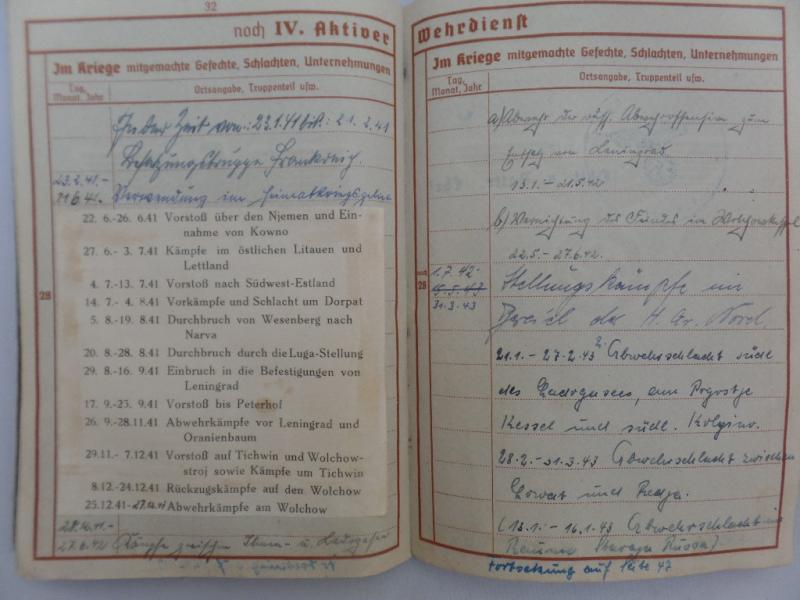 32
noch IV. Aktiver
Im Kriege mitgemachte Gefechte, Schlachten, Unternehmungen
Tag, Monat, Jahr
Ortsangabe, Truppenteil usw.
In der Zeit vom: 23.1.41 bis: 21.2.41
Besatzungstruppe Frankreich.
23.2.41.-
21.6.41.- Verwendung im Heimatkriegsgebiet
22. 6.-26. 6.41 Vorstoß über den Njemen und Ein-
nahme von Kowno
27. 6.- 3. 7.41 Kämpfe im östlichen Litauen und
Lettland
4. 7.-13. 7.41 Vorstoß nach Südwest-Estland
14. 7.- 4. 8.41 Vorkämpfe und Schlacht um Dorpat
5. 8.-19. 8.41 Durchbruch von Wesenberg nach
Narva
20. 8.-28. 8.41 Durchbruch durch die Luga-Stellung
29. 8.-16. 9.41 Einbruch in die Befestigungen von
Leningrad
17. 9.-25. 9.41 Vorstoß bis Peterhof
26. 9.-28.11.41 Abwehrkämpfe vor Leningrad und
Oranienbaum
29.11.- 7.12.41 Vorstoß auf Tichwin und Wolchow-
stroj sowie Kämpfe um Tichwin
8.12.-24.12.41 Rückzugskämpfe auf den Wolchow
25.12.41- Abwehrkämpfe am Wolchow
27.6.42 Kämpfe zwischen Ilmen- u. Ladogasee
28
Wehrdienst
Im Kriege mitgemachte Gefechte, Schlachten, Unternehmungen
Tag, Monat, Jahr
Ortsangabe, Truppenteil usw.
a) Abwehr der russ. Abwehroffensive zum
Entsatz von Leningrad
13.1.- 21.5.42
b) Vernichtung des Feindes im Wolchowkessel
22.5.- 27.6.42.
noch
28
1.7.42.-
15.5.43
31.3.43
Stellungskämpfe im
Bereich der H. Gr. Nord.
21.1.- 27.2.43 Abwehrschlacht südl
des Ladogasees, am Pogostje
Kessel und südl. Kolpino.
28.2.- 31.3.43 Abwehrschlacht zwischen
Lowat und Redja.
Abwehrschlacht im
Raume Staraja Russa)
Fortsetzung auf Seite 47